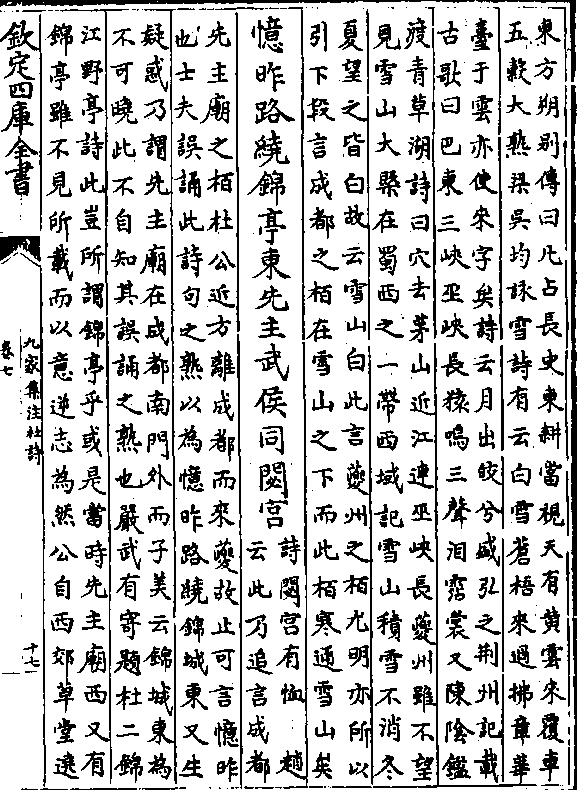 東方朔别傳曰凡占長史東耕當視天有黄雲來覆車
五穀大熟梁吳均詠雪詩有云白雪蒼梧來過拂章華
臺于雲亦使來字矣詩云月出皎兮盛弘之荆州記載
古歌曰巴東三峽巫峽長猿鳴三聲泪霑裳又陳陰鏗
渡青草湖詩曰穴去茅山近江連巫峽長夔州雖不望
見雪山大槩在蜀西之一帶西域記雪山積雪不消冬
夏望之皆白故云雪山白此言夔州之栢尤明亦所以
引下段言成都之栢在雪山之下而此栢寒通雪山矣
憶昨路繞錦亭東先主武侯同閟宫
詩閟宫有恤 趙
云此乃追言成都
先主廟之栢杜公近方離成都而來夔故止可言憶昨
也士夫誤誦此詩句之熟以為憶昨路繞錦城東又生
疑惑乃謂先主廟在成都南門外而子美云錦城東為
不可曉此不自知其誤誦之熟也嚴武有寄題杜二錦
江野亭詩此豈所謂錦亭乎或是當時先主廟西又有
錦亭雖不見所載而以意逆志為然公自西郊草堂逺
欽定四庫全書
九家集注杜詩
卷七
十七